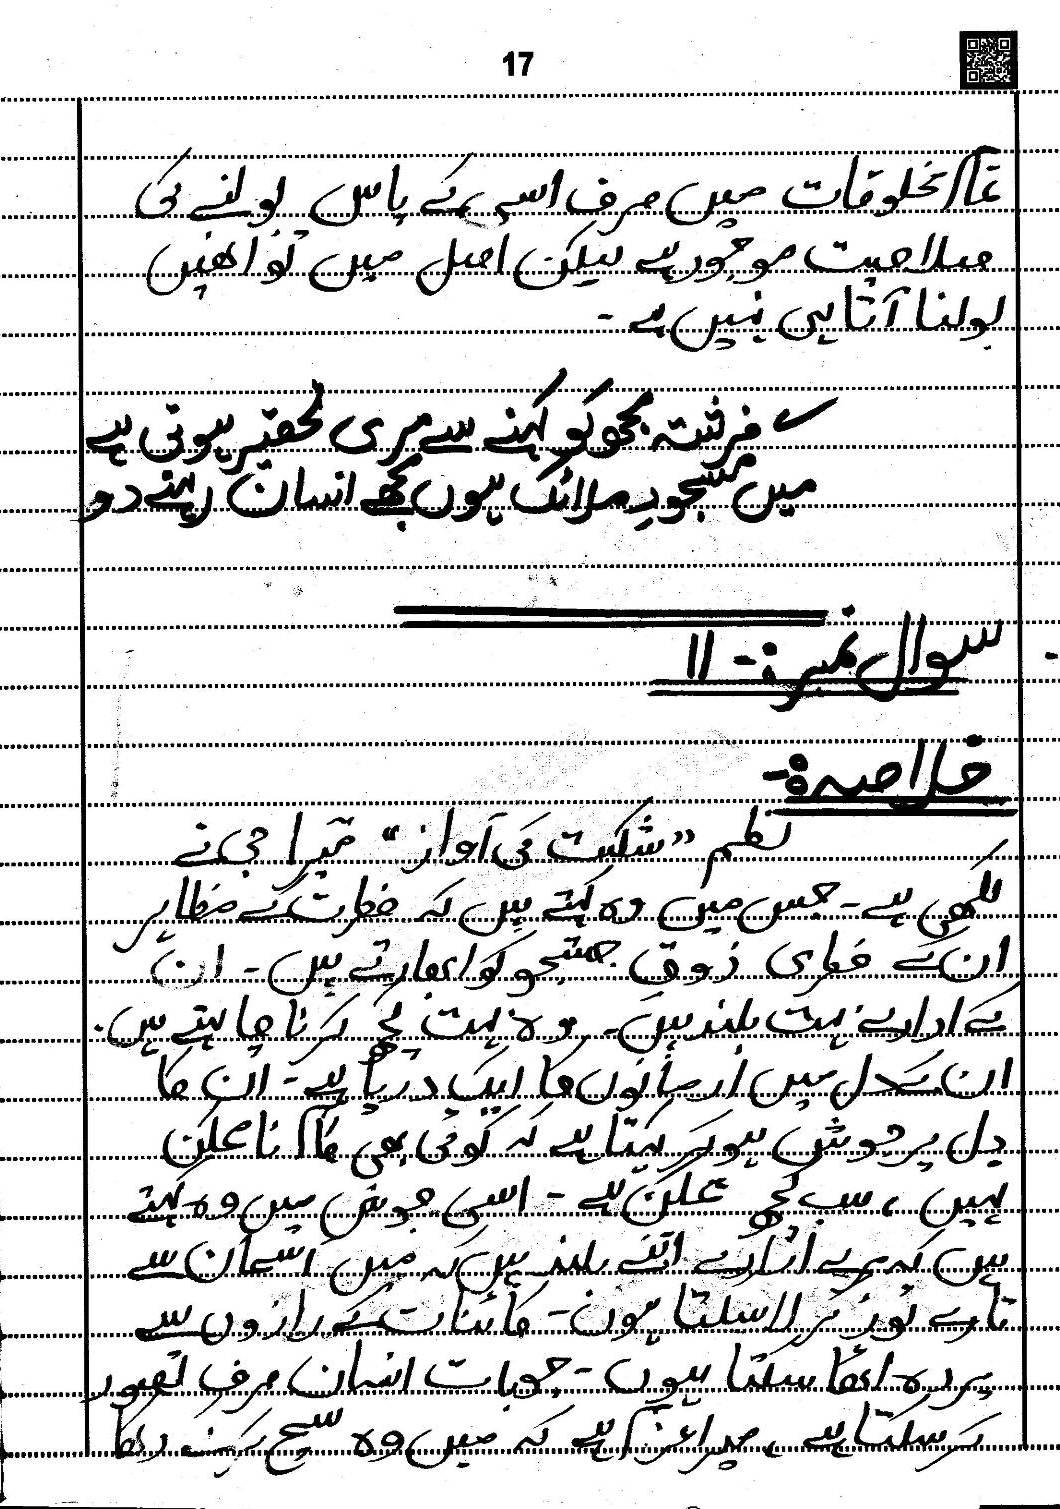 17
تمام مخلوقات میں صرف اسی کے پاس بولنے کی
صلاحیت موجود ہے لیکن اصل میں تو انھیں
بولنا آتا ہی نہیں ہے۔
؎ فرشتہ مجھ کو کہنے سے مری تحقیر ہوتی ہے
میں مسجودِ ملائک ہوں مجھے انسان رہنے دو
سوال نمبر :- 11
خلاصہ :-
نظم "شکست کی آواز" میرا جی نے
لکھی ہے۔ جس میں وہ کہتے ہیں کہ فطرت کے مظاہر
ان کے فطری ذوق جستجو کو ابھارتے ہیں۔ ان
کے ارادے بہت بلند ہیں۔ وہ بہت کچھ کرنا چاہتے ہیں۔
ان کے دل میں ارمانوں کا ایک دریا ہے۔ ان کا
دل پرجوش ہو کر کہتا ہے کہ کوئی بھی کام ناممکن
نہیں، سب کچھ ممکن ہے۔ اسی جوش میں وہ کہتے
ہیں کہ میرے ارادے اتنے بلند ہیں کہ میں آسمان سے
تارے توڑ کر لا سکتا ہوں۔ کائنات کے رازوں سے
پردہ اٹھا سکتا ہوں۔ جو بات انسان صرف تصور
کر سکتا ہے، میرا عزم ہے کہ میں وہ سچ کر کے دکھا